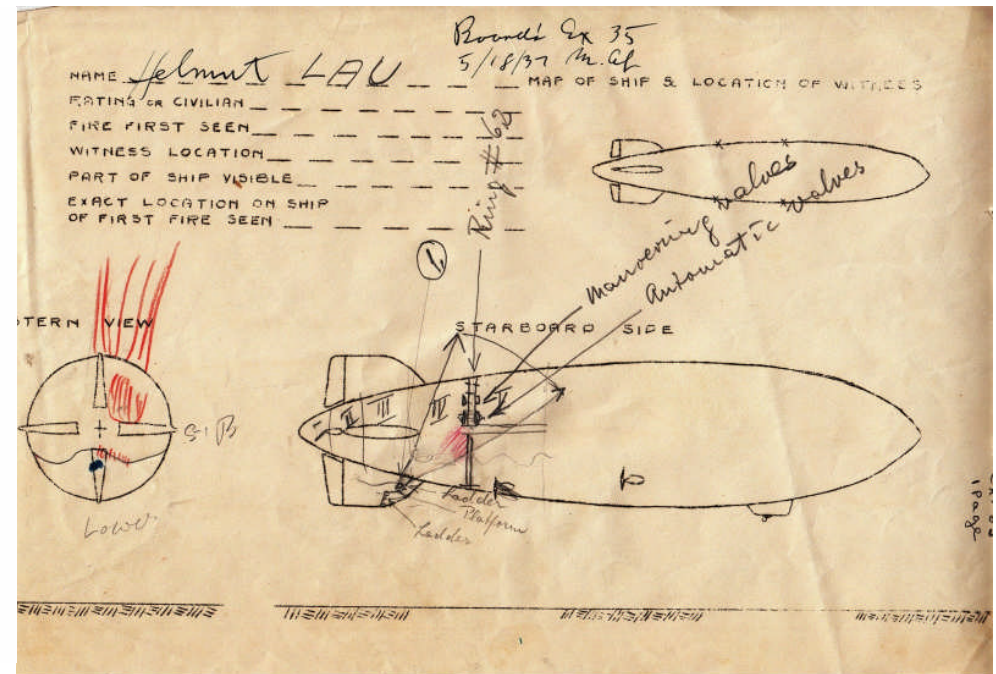 Board's Ex 35
5/18/37
NAME Helmut LAU
MAP OF SHIP & LOCATION OF WITNESS
RATING OR CIVILIAN
FIRE FIRST SEEN
WITNESS LOCATION
PART OF SHIP VISIBLE
EXACT LOCATION ON SHIP
OF FIRST FIRE SEEN
Ring #62
1,
Manvering valves
Automatic valves
STERN VIEW
STARBOARD SIDE
I II III IV V
St B
Lower
Ladder
Platform
Ladder
1 Page